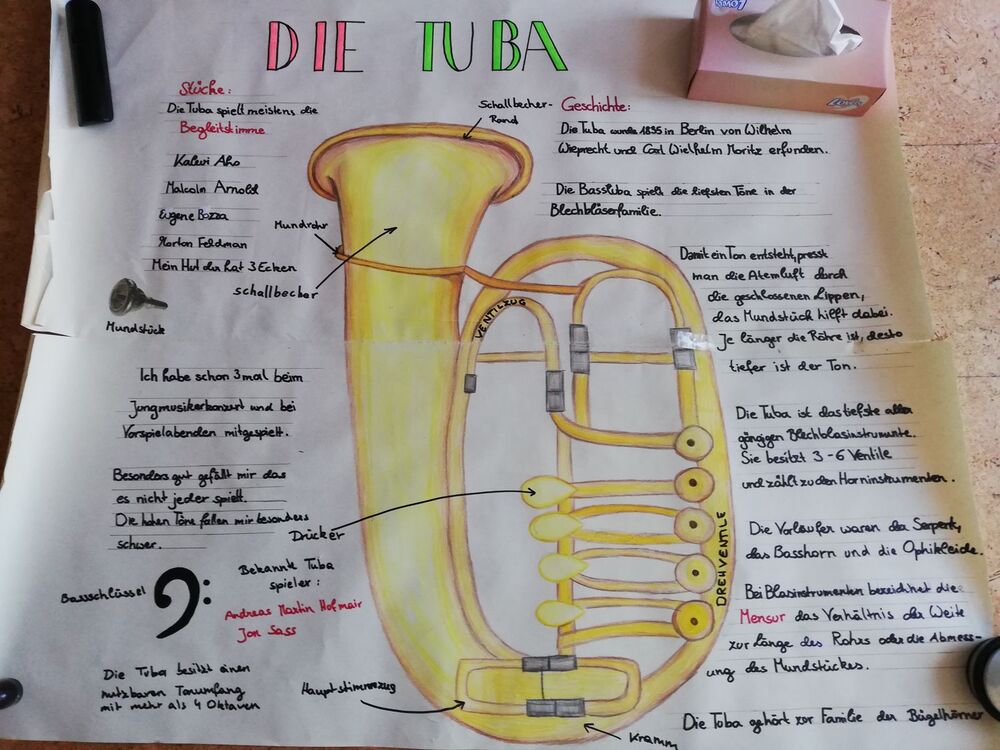 DIE TUBA
Stücke:
Die Tuba spielt meistens die
Begleitstimme
Kalevi Aho
Malcolm Arnold
Eugene Bozza
Morton Feldman
Mein Hut der hat 3 Ecken
Mundstück
Ich habe schon 3 mal beim
Jungmusikerkonzert und bei
Vorspielabenden mitgespielt.
Besonders gut gefällt mir das
es nicht jeder spielt.
Die hohen Töne fallen mir besonders
schwer.
Bassschlüssel
Bekannte Tuba
spieler:
Andreas Martin Hofmair
Jon Sass
Die Tuba besitzt einen
nutzbaren Tonumfang
mit mehr als 4 Oktaven
Schallbecher-
Rand
Mundrohr
schallbecher
VENTILZUG
Drücker
DREHVENTILE
Hauptstimmzug
Kramm
Geschichte:
Die Tuba wurde 1835 in Berlin von Wilhelm
Wieprecht und Carl Wielhelm Moritz erfunden.
Die Basstuba spielt die tiefsten Töne in der
Blechbläserfamilie.
Damit ein Ton entsteht, presst
man die Atemluft durch
die geschlossenen Lippen,
das Mundstück hilft dabei.
Je länger die Röhre ist, desto
tiefer ist der Ton.
Die Tuba ist das tiefste aller
gängigen Blechblasinstrumente.
Sie besitzt 3-6 Ventile
und zählt zu den Horninstrumenten.
Die Vorläufer waren der Serpent,
das Basshorn und die Ophikleide.
Bei Blasinstrumenten bezeichnet die
Mensur das Verhältnis der Weite
zur Länge des Rohrs oder die Abmess-
ung des Mundstückes.
Die Tuba gehört zur Familie der Bügelhörner